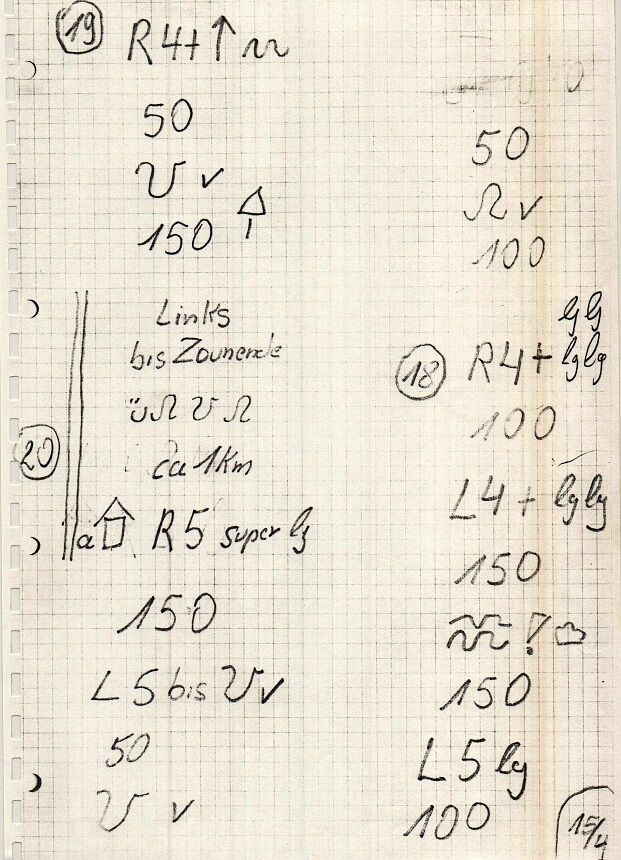 19
R4+ ↑
50
℧ v
150
Links
bis Zaunende
ü Ω ℧ Ω
20
ca 1Km
a R5 super lg
150
L5 bis ℧ v
50
℧ v
50
Ω v
100
lg lg
18 R4+ lg lg
100
L4+ lg lg
150
!
150
L5 lg
100
15/4